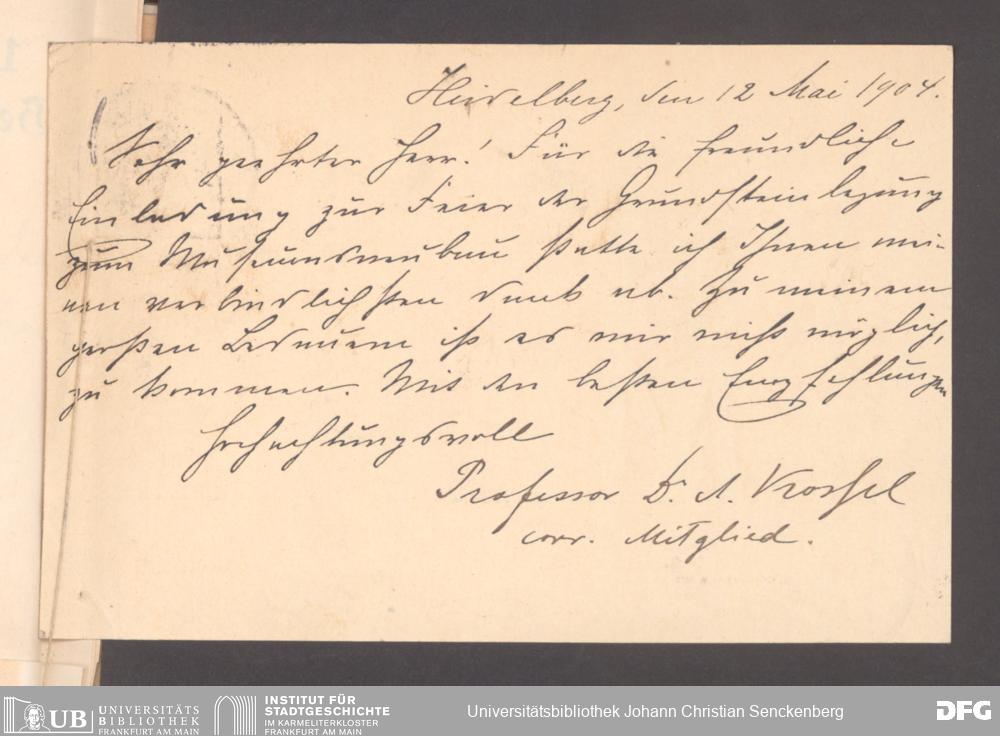 Heidelberg, den 12 Mai 1904.
Sehr geehrter Herr! Für die freundliche
Einladung zur Feier der Grundsteinlegung
zum Museumsneubau statte ich Ihnen mei-
nen verbindlichsten Dank ab. Zu meinem
großen Bedauern ist es mir nicht möglich,
zu kommen. Mit den besten Empfehlungen
Hochachtungsvoll
Professor Dr. A. Kossel
corr. Mitglied.
UB UNIVERSITÄTS
BIBLIOTHEK
FRANKFURT AM MAIN
INSTITUT FÜR
STADTGESCHICHTE
IM KARMELITERKLOSTER
FRANKFURT AM MAIN
Universitätsbibliothek Johann Christian Senckenberg
DFG